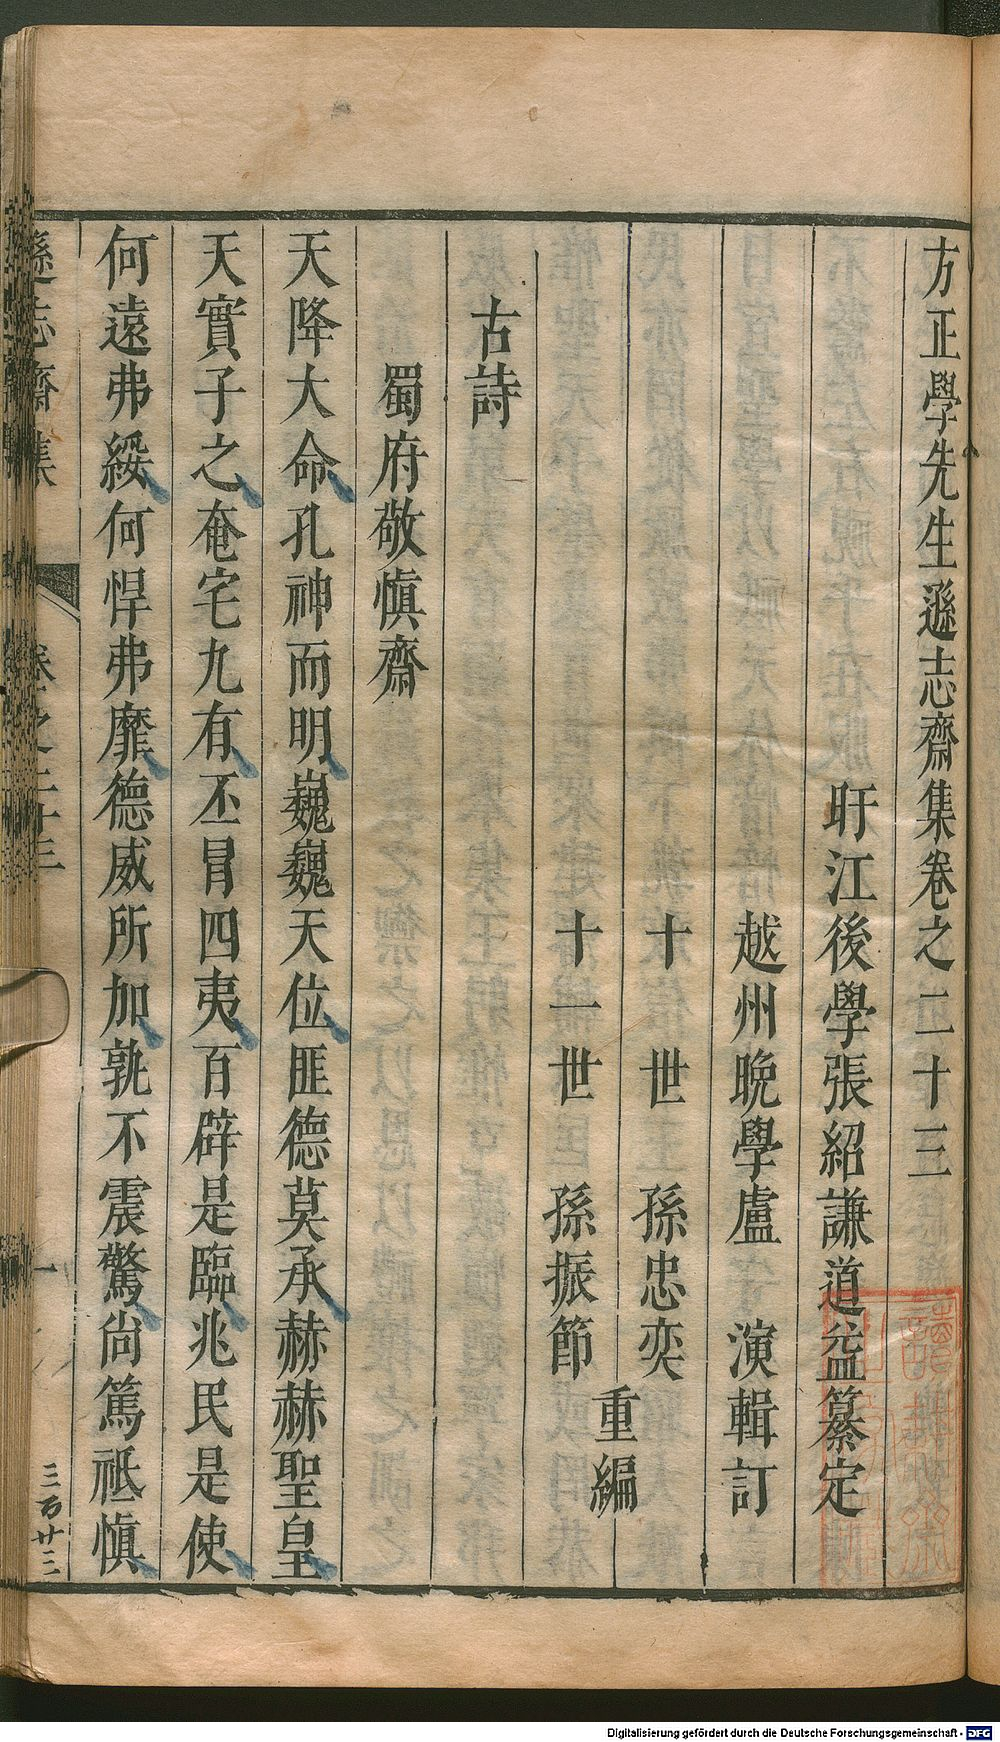 方正學先生遜志齋集卷之二十三
盱江後學張紹謙道益纂定
越州晚學盧演輯訂
十世孫忠奕
十一世孫振節
重編
古詩
蜀府敬愼齋
天降大命孔神而明巍巍天位匪德莫承赫赫聖皇
天實子之奄宅九有丕冒四夷百辟是臨兆民是使
何遠弗綏何悍弗靡德威所加孰不震驚尙篤祗愼
遜志齋集
卷之二十三
一
三百廿三
Digitalisierung gefördert durch die Deutsche Forschungsgemeinschaft - DFG